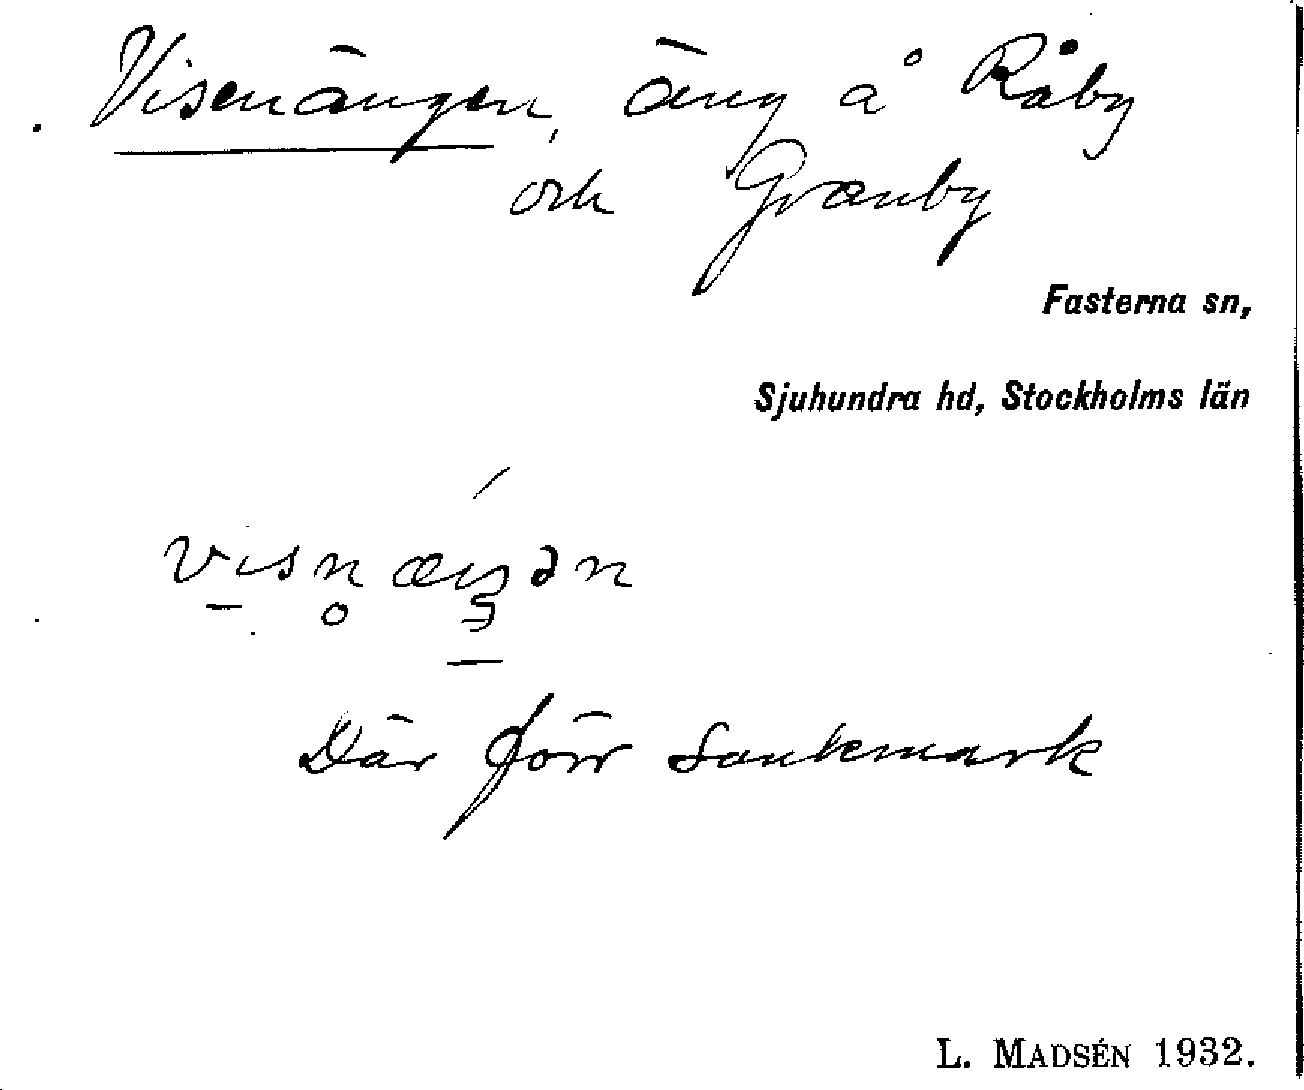 Visenängen, äng å Råby
och Granby
Fasterna sn,
Sjuhundra hd, Stockholms län
Där förr sankmark
L. MADSÉN 1932.